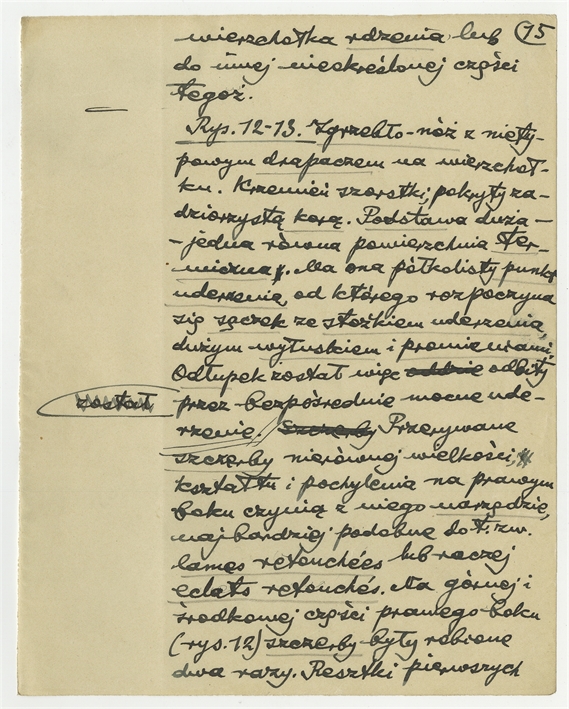 15
wierzchołka rdzenia lub
do innej nieokreślonej części
tegoż.
Rys. 12-13. Zgrzebło-nóż z niety-
powym drapaczem na wierzchoł-
ku. Krzemień szorstki, pokryty za-
dziorzystą korą. Podstawa duża –
– jedna równa powierzchnia
Na ona półkolisty punkt
uderzenia, od którego rozpoczyna
się sączek ze stożkiem uderzenia,
dużym wyłuskiem i promieniami.
Odłupek został więc odbity
został
przez bezpośrednie mocne ude-
rzenie. Szczerby Przerywane
szczerby nierównej wielkości,
kształtu i pochylenia na prawym
boku czynią z niego narzędzie,
najbardziej podobne do t. zw.
lames retouchées lub raczej
eclats retouchés. Na górnej i
środkowej części prawego boku
(rys. 12) szczerby były robione
dwa razy. Resztki pierwszych